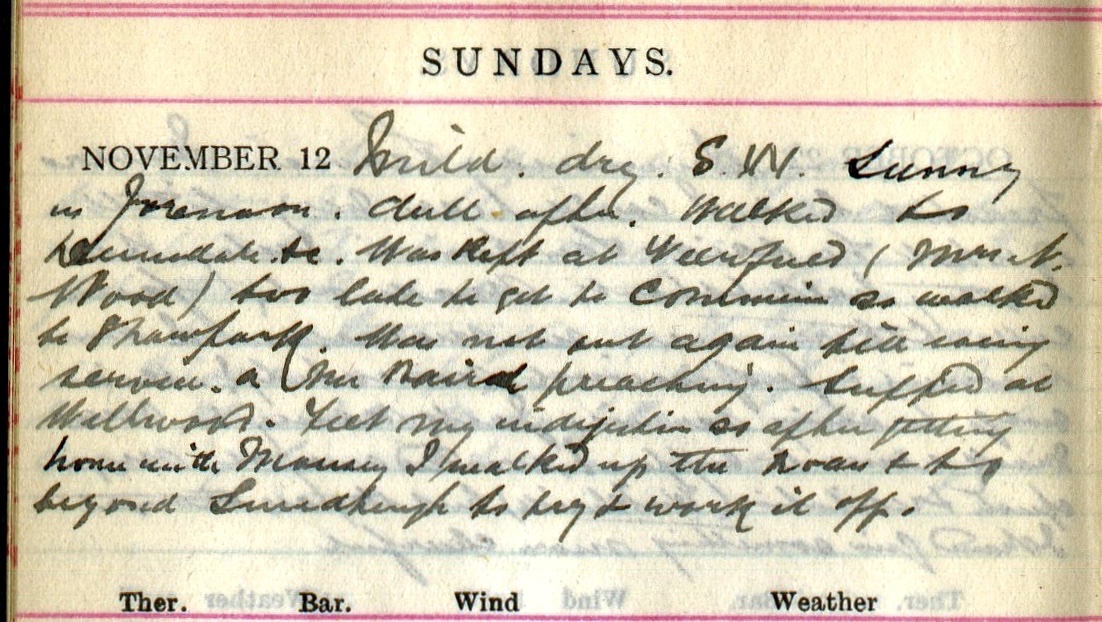 SUNDAYS.
NOVEMBER 12 Mild. dry. S.W. Sunny
in forenoon. dull after. Walked to
&c. Was kept at (Mrs N.
Wood) too late to get to Communion so walked
to Shawpark. Was not out again till evening
service. a Mr Baird preaching. Supped at
Wellwood. Felt my indigestion so after getting
home with Mousey I walked up the road & to
beyond to try & work it off.
Ther. Bar. Wind Weather